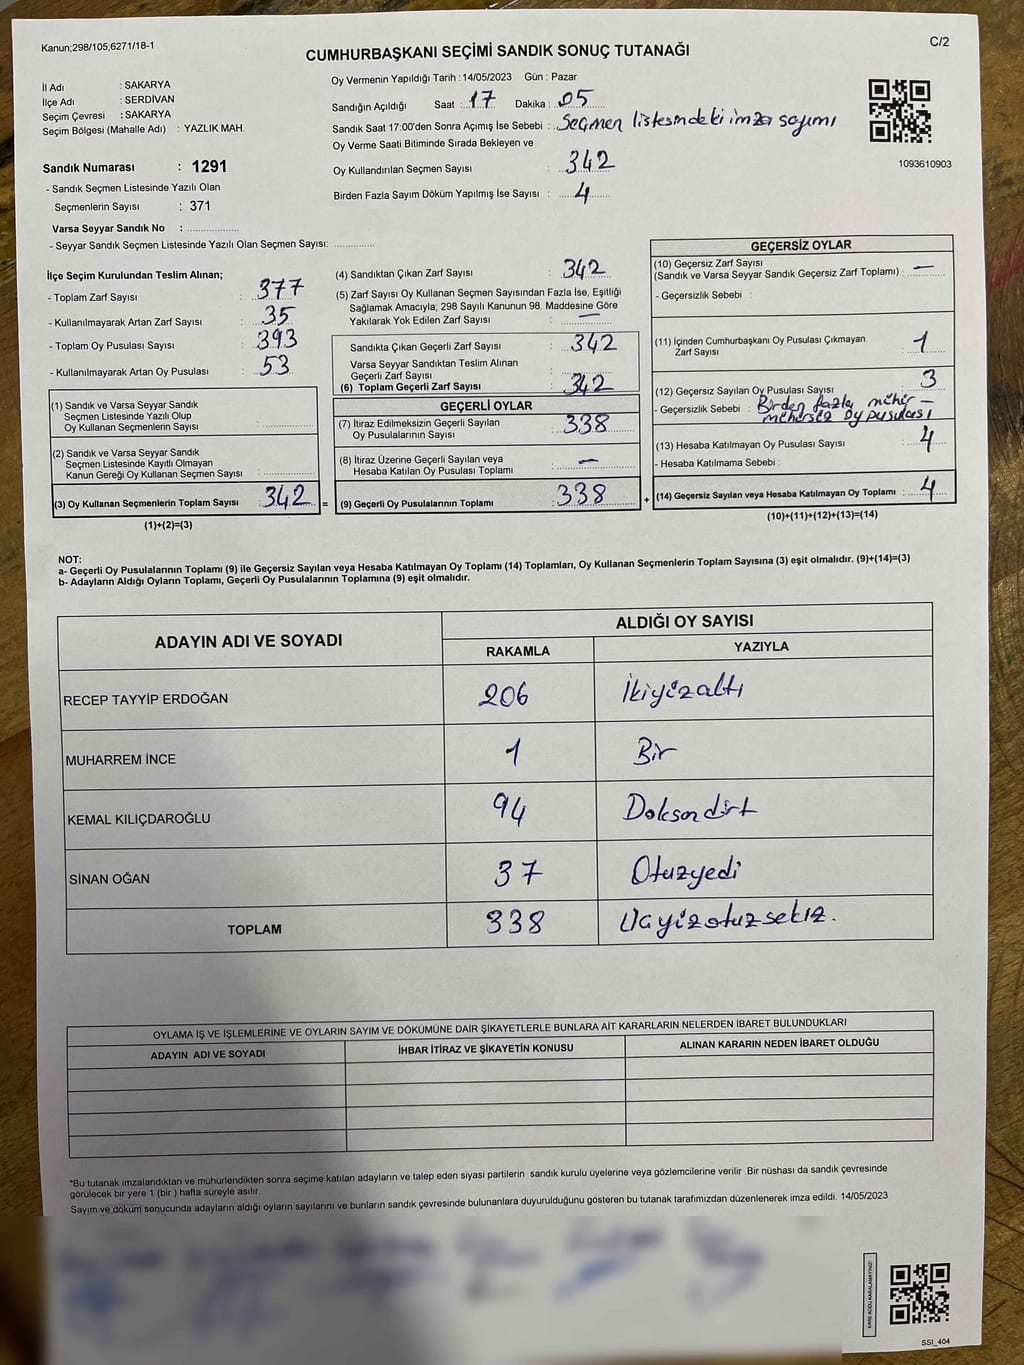 Kanun;298/105,6271/18-1
C/2
CUMHURBAŞKANI SEÇİMİ SANDIK SONUÇ TUTANAĞI
İl Adı : SAKARYA
İlçe Adı : SERDİVAN
Seçim Çevresi : SAKARYA
Seçim Bölgesi (Mahalle Adı) : YAZLIK MAH.
Sandık Numarası : 1291
- Sandık Seçmen Listesinde Yazılı Olan
Seçmenlerin Sayısı : 371
Varsa Seyyar Sandık No : ..................
- Seyyar Sandık Seçmen Listesinde Yazılı Olan Seçmen Sayısı: ..............
Oy Vermenin Yapıldığı Tarih :14/05/2023 Gün : Pazar
Sandığın Açıldığı Saat : 17 Dakika : 05
Sandık Saat 17:00'den Sonra Açımış İse Sebebi : Seçmen listesindeki imza sayımı
Oy Verme Saati Bitiminde Sırada Bekleyen ve
Oy Kullandırılan Seçmen Sayısı : 342
Birden Fazla Sayım Döküm Yapılmış İse Sayısı : 4
1093610903
İlçe Seçim Kurulundan Teslim Alınan;
- Toplam Zarf Sayısı : 377
- Kullanılmayarak Artan Zarf Sayısı : 35
- Toplam Oy Pusulası Sayısı : 393
- Kullanılmayarak Artan Oy Pusulası : 53
(1) Sandık ve Varsa Seyyar Sandık
Seçmen Listesinde Yazılı Olup
Oy Kullanan Seçmenlerin Sayısı :
(2) Sandık ve Varsa Seyyar Sandık
Seçmen Listesinde Kayıtlı Olmayan
Kanun Gereği Oy Kullanan Seçmen Sayısı :
(3) Oy Kullanan Seçmenlerin Toplam Sayısı : 342 =
(1)+(2)=(3)
(4) Sandıktan Çıkan Zarf Sayısı : 342
(5) Zarf Sayısı Oy Kullanan Seçmen Sayısından Fazla İse, Eşitliği
Sağlamak Amacıyla; 298 Sayılı Kanunun 98. Maddesine Göre
Yakılarak Yok Edilen Zarf Sayısı : —
Sandıkta Çıkan Geçerli Zarf Sayısı : 342
Varsa Seyyar Sandıktan Teslim Alınan
Geçerli Zarf Sayısı :
(6) Toplam Geçerli Zarf Sayısı : 342
GEÇERLİ OYLAR
(7) İtiraz Edilmeksizin Geçerli Sayılan
Oy Pusulalarının Sayısı : 338
(8) İtiraz Üzerine Geçerli Sayılan veya
Hesaba Katılan Oy Pusulası Toplamı : —
(9) Geçerli Oy Pusulalarının Toplamı : 338 +
GEÇERSİZ OYLAR
(10) Geçersiz Zarf Sayısı
(Sandık ve Varsa Seyyar Sandık Geçersiz Zarf Toplamı) : —
- Geçersizlik Sebebi :
(11) İçinden Cumhurbaşkanı Oy Pusulası Çıkmayan
Zarf Sayısı : 1
(12) Geçersiz Sayılan Oy Pusulası Sayısı : 3
- Geçersizlik Sebebi : Birden fazla mühür –
mühürsüz oy pusulası
(13) Hesaba Katılmayan Oy Pusulası Sayısı : 4
- Hesaba Katılmama Sebebi :
(14) Geçersiz Sayılan veya Hesaba Katılmayan Oy Toplamı : 4
(10)+(11)+(12)+(13)=(14)
NOT:
a- Geçerli Oy Pusulalarının Toplamı (9) ile Geçersiz Sayılan veya Hesaba Katılmayan Oy Toplamı (14) Toplamları, Oy Kullanan Seçmenlerin Toplam Sayısına (3) eşit olmalıdır. (9)+(14)=(3)
b- Adayların Aldığı Oyların Toplamı, Geçerli Oy Pusulalarının Toplamına (9) eşit olmalıdır.
ADAYIN ADI VE SOYADI
ALDIĞI OY SAYISI
RAKAMLA YAZIYLA
RECEP TAYYİP ERDOĞAN 206 İkiyüzaltı
MUHARREM İNCE 1 Bir
KEMAL KILIÇDAROĞLU 94 Doksandört
SİNAN OĞAN 37 Otuzyedi
TOPLAM 338 Üçyüzotuzsekiz.
OYLAMA İŞ VE İŞLEMLERİNE VE OYLARIN SAYIM VE DÖKÜMÜNE DAİR ŞİKAYETLERLE BUNLARA AİT KARARLARIN NELERDEN İBARET BULUNDUKLARI
ADAYIN ADI VE SOYADI İHBAR İTİRAZ VE ŞİKAYETİN KONUSU ALINAN KARARIN NEDEN İBARET OLDUĞU
*Bu tutanak imzalandıktan ve mühürlendikten sonra seçime katılan adayların ve talep eden siyasi partilerin sandık kurulu üyelerine veya gözlemcilerine verilir .Bir nüshası da sandık çevresinde
görülecek bir yere 1 (bir ) hafta süreyle asılır.
Sayım ve döküm sonucunda adayların aldığı oyların sayılarını ve bunların sandık çevresinde bulunanlara duyurulduğunu gösteren bu tutanak tarafımızdan düzenlenerek imza edildi. 14/05/2023
KARE KODU KARALAMAYINIZ!
SSI_404